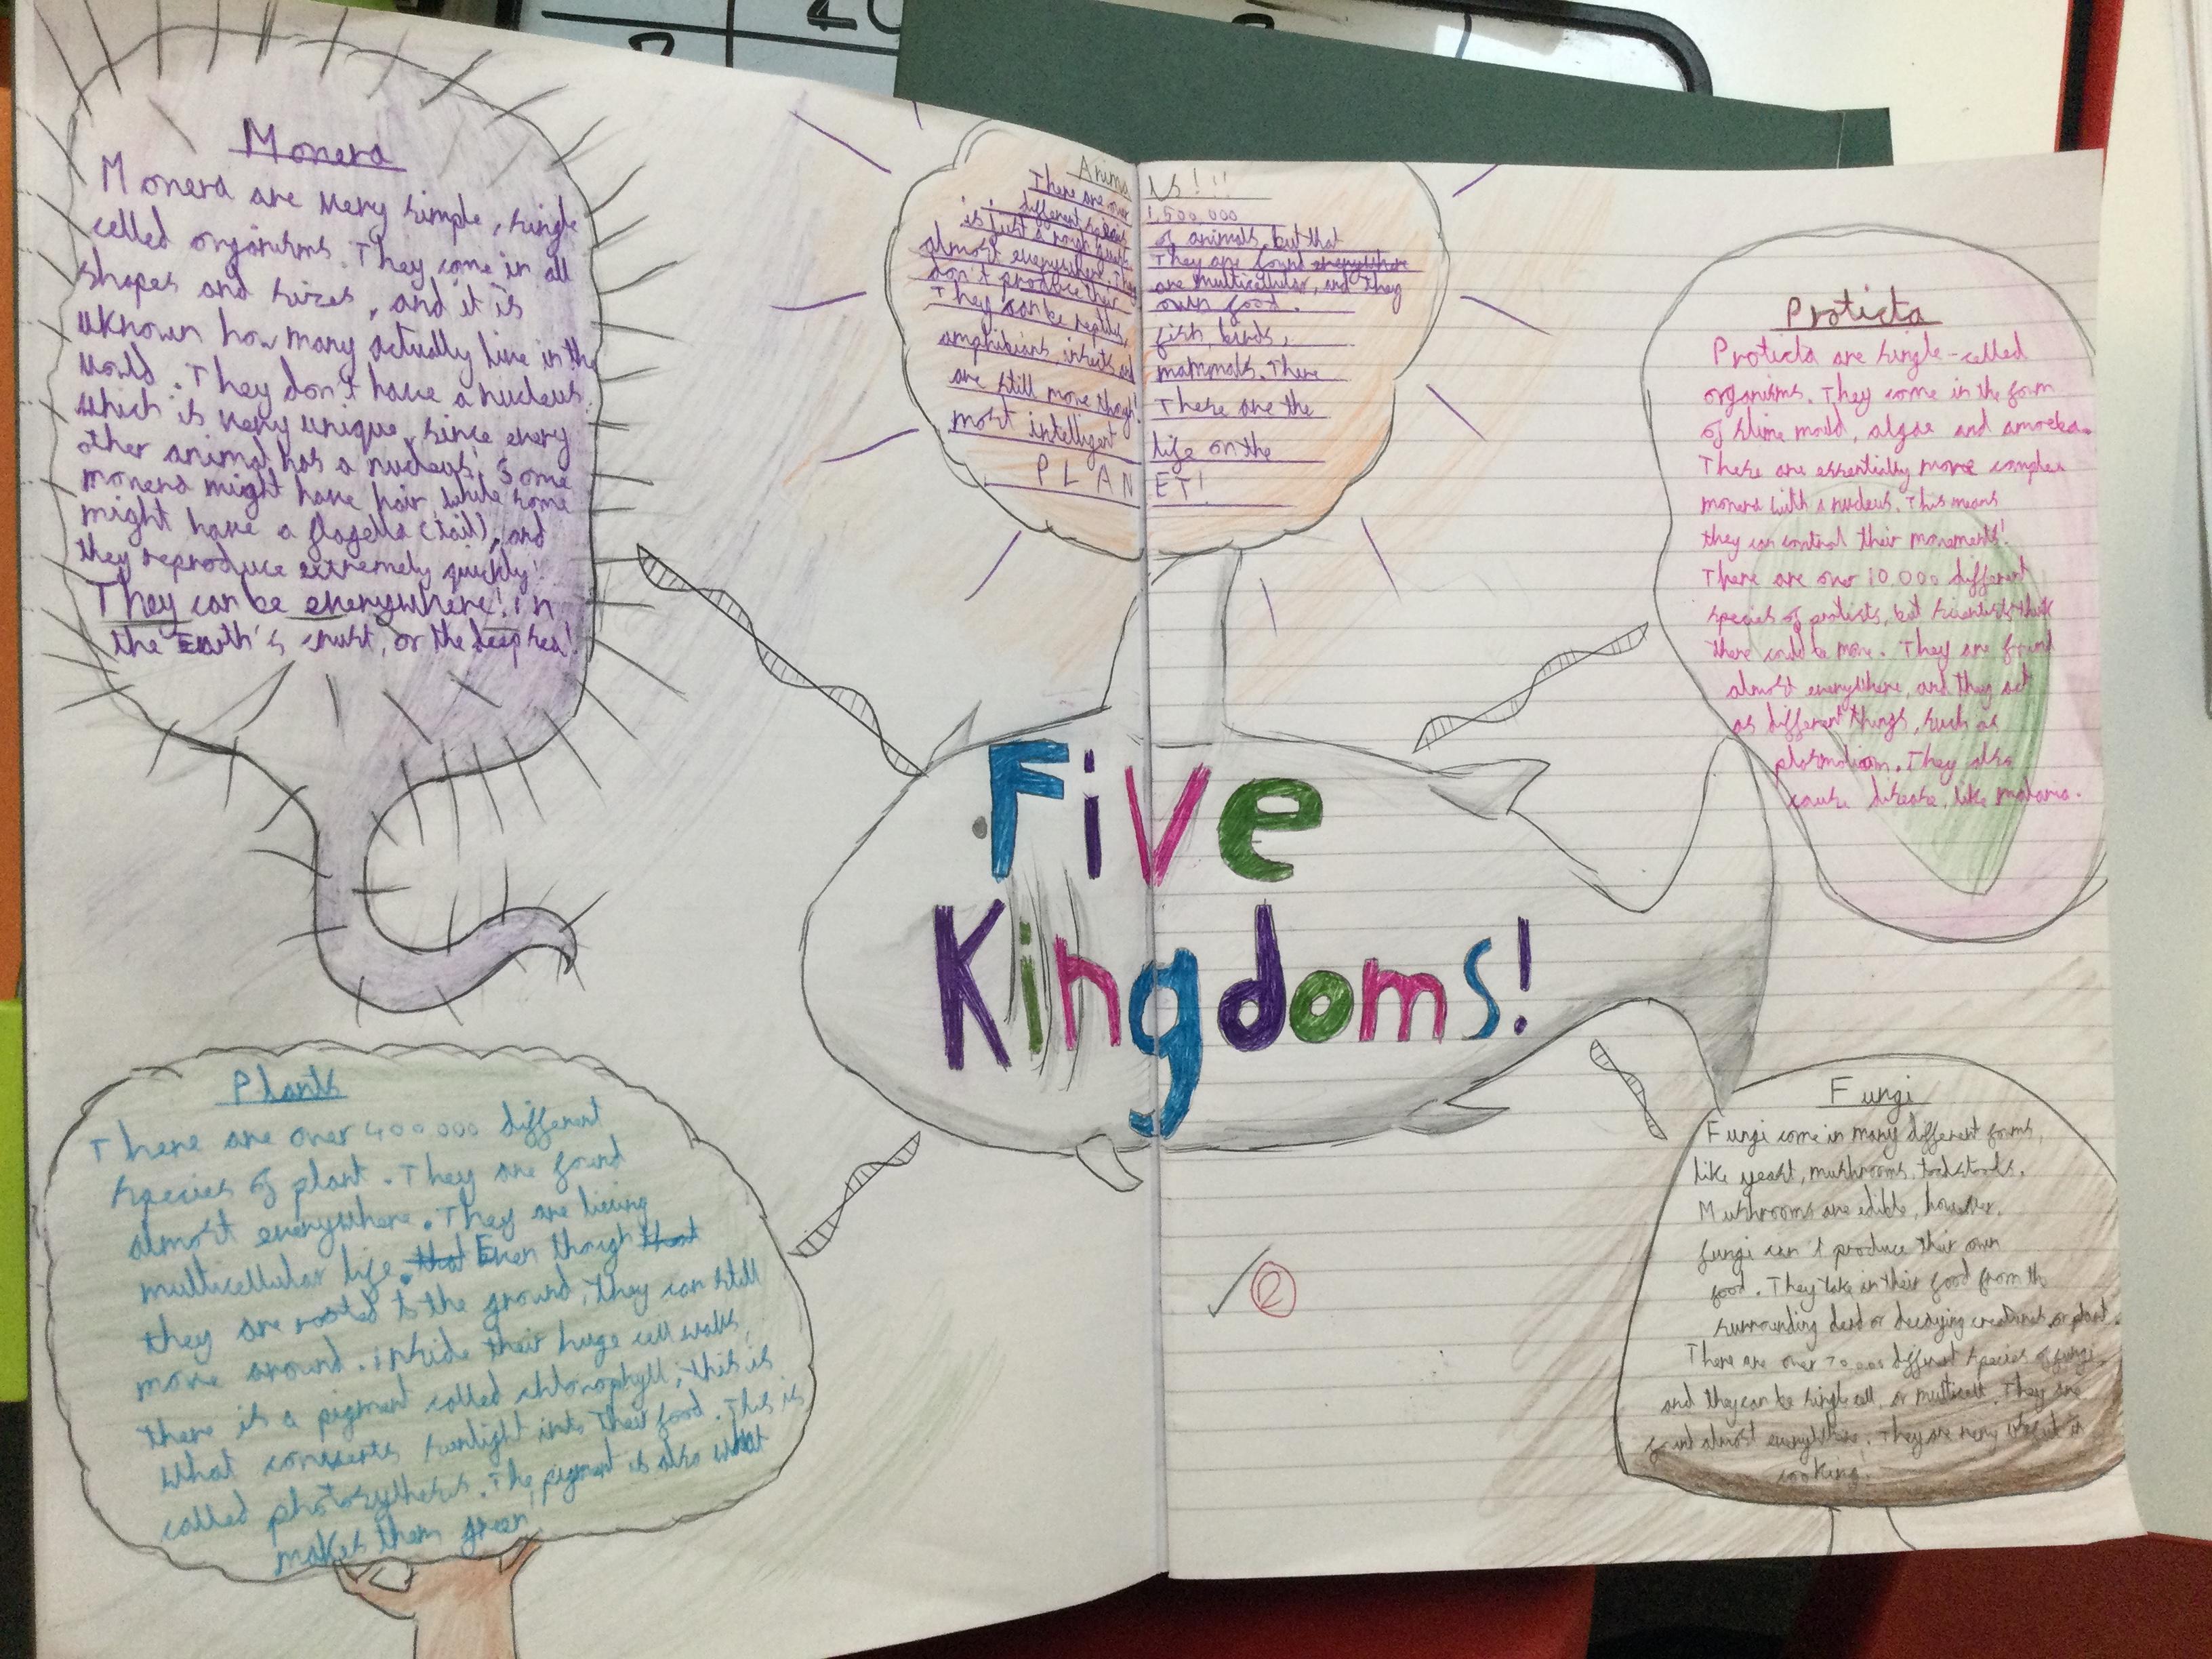 Monera
Monera are very simple, single
celled organisms. They come in all
shapes and sizes, and it is
uknown how many actually live in the
world. They don't have a nucleus,
which is very unique, since every
other animal has a nucleus. Some
monera might have hair, while some
might have a flagella (tail), and
they reproduce extremely quickly!
They can be everywhere! in
the Earth's crust, or the deep sea!
Animals!!!
There are over 1,500,000
different species of animals, but that
is just a rough guess. They are found everywhere
almost everywhere. They are multicellular, and they
don't produce their own food.
They can be reptiles, fish, birds,
amphibians, insects and mammals. There
are still more though! There are the
most intelligent life on the
PLANET!
Proticta
Proticta are single-celled
organisms. They come in the form
of slime mould, algae and amoeba.
There are essentially more complex
monera with a nucleus. This means
they can control their movements!
There are over 10,000 different
species of protists, but scientists think
there could be more. They are found
almost everywhere, and they act
as different things, such as
They also
cause disease, like malaria.
Five
Kingdoms!
Plants
There are over 400 000 different
species of plant. They are found
almost everywhere. They are living
multicellular life. that Even though that
they are rooted to the ground, they can still
move around. inside their huge cell walls,
there is a pigment called chlorophyll, this is
what converts sunlight into their food. This is
called photosythesis. The pigment is also what
makes them green!
2
Fungi
Fungi come in many different forms,
like yeast, mushrooms, toadstools.
Mushrooms are edible, however,
fungi can't produce their own
food. They take in their food from the
surrounding dead or decaying creatures or plant.
There are over 70,000 different species of fungi,
and they can be single cell, or multicell. They are
found almost everywhere. They are very useful in
cooking!